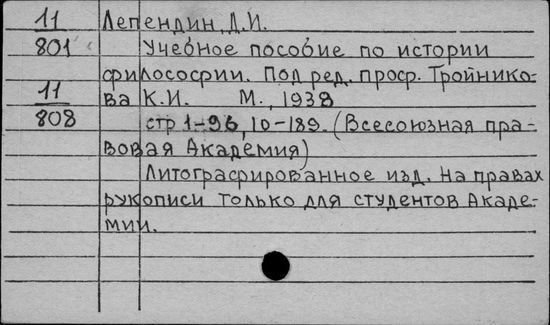 11 Лепендин, Д.И.
801 Учебное пособие по истории
философии. Под ред. проф. Тройнико-
11 ва К.И. М., 1938
808 стр 1-96, 10-189. (Всесоюзная пра-
вовая Академия)
Литографированное изд. На правах
рукописи только для студентов Акаде-
мии.